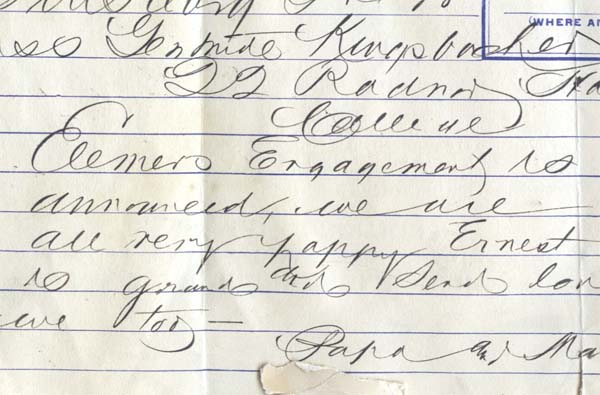 WHERE AN
ss Gertrude Kingsbacher
22 Radnor Ha
College
Elemers Engagement is
announced, we are
all very happy Ernest
is grand and sends lov
we too —
Papa and Ma